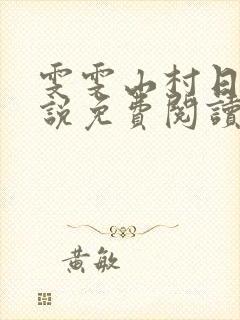 雯雯山村日
説免費閱讀
黄敏